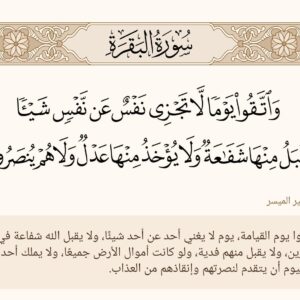 سُورَةُ البَقَرَةِ
وَاتَّقُوا۟ يَوْمًا لَّا تَجْزِى نَفْسٌ عَن نَّفْسٍ شَيْـًٔا
مِنْهَا شَفَـٰعَةٌ وَلَا يُؤْخَذُ مِنْهَا عَدْلٌ وَلَا هُمْ
يوم القيامة، يوم لا يغني أحد عن أحد شيئًا، ولا يقبل الله شفاعة في
ولا يقبل منهم فدية، ولو كانت أموال الأرض جميعًا، ولا يملك أحد
أن يتقدم لنصرتهم وإنقاذهم من العذاب.